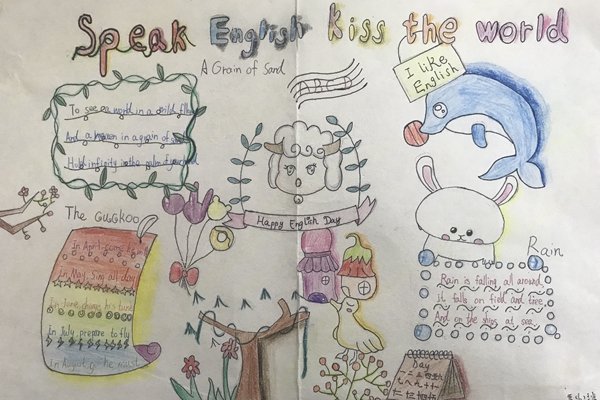 Speak English kiss the world
A Grain of Sand
I like
English
To see a world in a
And a heaven in a grain of
Hold infinity in the palm of your
Happy English Day
The Cuckoo
In April come
In May, Sing all day
In June change his tune
In July prepare to fly
In August he must
Rain
Rain is falling all around,
It falls on field and tree,
And on the ships at sea.
Day